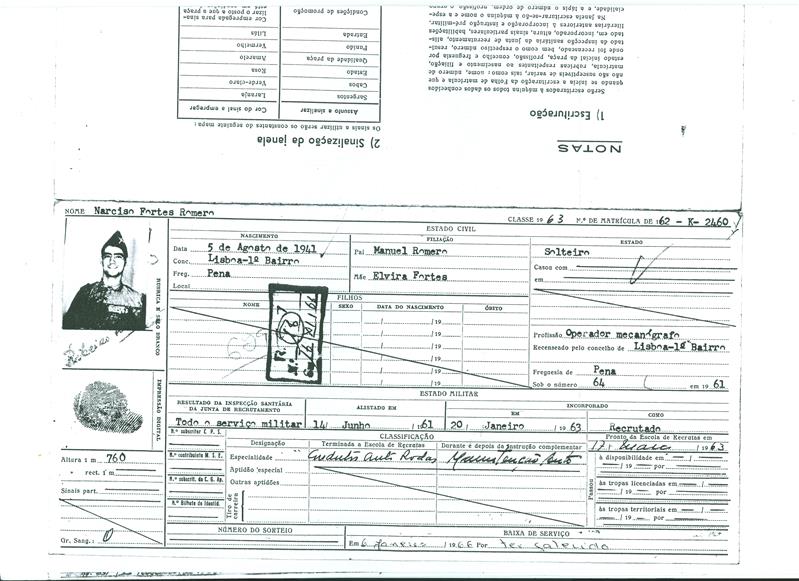 NOTAS
1) Escrituração
Serão escriturados à máquina todos os dados conhecidos
quando se inicia a escrituração da folha de matrícula e que
não são susceptíveis de variar, tais como: nome, número de
matrícula, rubricas respeitantes ao nascimento e filiação,
estado inicial da praça, profissão, concelho e freguesia por
onde foi recenseado, bem como o respectivo número, resul-
tado da inspecção sanitária da junta de recrutamento, alis-
tado em, incorporado, altura, sinais particulares, habilitações
literárias anteriores à incorporação e instrução pré-militar.
Na janela escriturar-se-ão à máquina o nome e a espe-
cialidade, e a lápis o número de ordem, profissão e
2) Sinalização da janela
Os sinais a utilizar serão os constantes do seguinte mapa:
Assunto a sinalizar Cor do sinal a empregar
Sargentos Laranja
Cabos Verde-claro
Estado Rosa
Qualidade da praça Amarelo
Punido Vermelho
Estrada Lilás
Condições de promoção
NOME Narciso Fortes Romero
CLASSE 19 63 N.º DE MATRÍCULA DE 162 - K- 2460
ESTADO CIVIL
NASCIMENTO FILIAÇÃO ESTADO
Data 5 de Agosto de 1941 Pai Manuel Romero Solteiro
Conc. Lisboa-1º Bairro Casou com
Freg. Pena Mãe Elvira Fortes em
Local
RUBRICA E SELO BRANCO
FILHOS
NOME SEXO DATA DO NASCIMENTO ÓBITO
/ / 19
Profissão Operador mecanógrafo
Recenseado pelo concelho de Lisboa-1º Bairro
Freguesia de Pena
Sob o número 64 em 1961
IMPRESSÃO DIGITAL
ESTADO MILITAR
RESULTADO DA INSPECÇÃO SANITÁRIA DA JUNTA DE RECRUTAMENTO ALISTADO EM INCORPORADO EM COMO
Todo o serviço militar 14 Junho 1961 20 Janeiro 1963 Recrutado
CLASSIFICAÇÃO
Designação Terminada a Escola de Recrutas Durante e depois da instrução complementar
Pronto da Escola de Recrutas em
1963
Especialidade Auto Rodas Auto
Aptidão especial
Outras aptidões
Tiro de carreira
N.º contribuinte M. S. E.
N.º Bilhete de Identid.
Passou
à disponibilidade em
/ 19 por
às tropas licenciadas em
/ 19 por
às tropas territoriais em
/ 19 por
Altura 1 m 760
» rect. 1 m
Sinais part.
Gr. Sang.: 0
NÚMERO DO SORTEIO BAIXA DE SERVIÇO
Em 6 Janeiro 1966 Por ter falecido